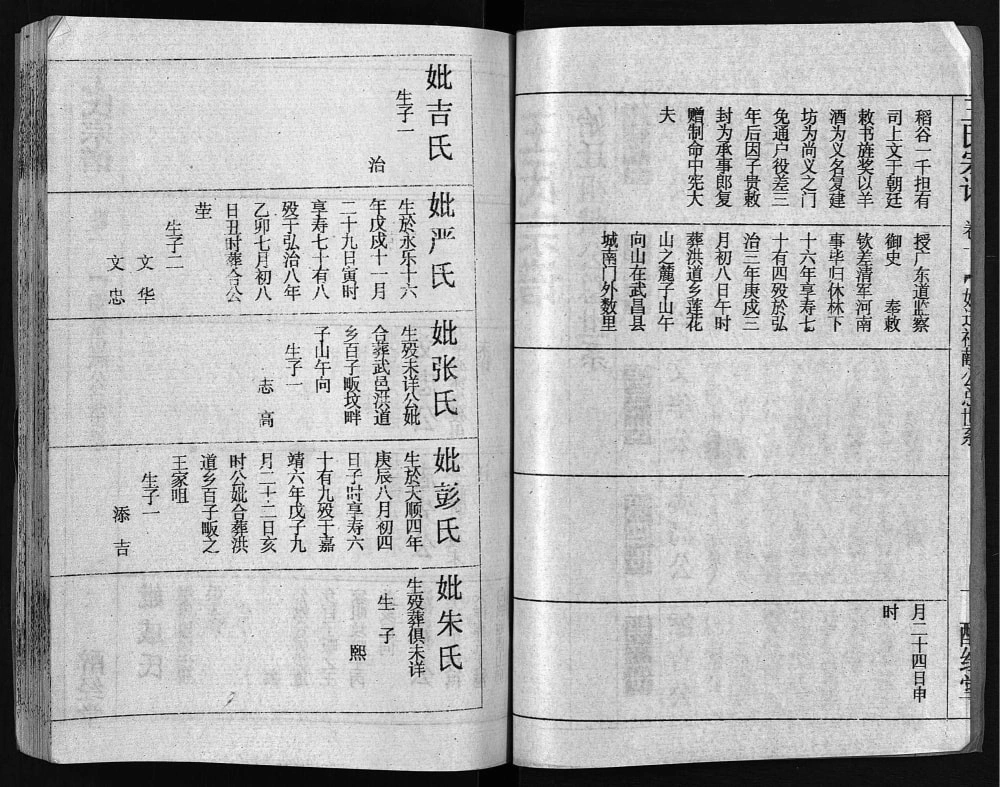 王氏宗谱
稻谷一千担有
司上文于朝廷
敕书旌奖以羊
酒为义名复建
坊为尚义之门
免通户役差三
年后因子贵敕
封为承事郎复
赠制命中宪大
夫
授广东道监察
御史 奉敕
钦差清军河南
事毕归休林下
十六年享寿七
十有四殁於弘
治三年庚戍三
月初八日午时
葬洪道乡莲花
山之麓子山午
向山在武昌县
城南门外数里
月二十四日申
时
妣吉氏
生子一
治
妣严氏
生於永乐十六
年戊戍十一月
二十九日寅时
享寿七十有八
殁于弘治八年
乙卯七月初八
日丑时葬合公
茔
生子二
文华
文忠
妣张氏
生殁未详公妣
合葬武邑洪道
乡百子畈坟畔
子山午向
生子一
志高
妣彭氏
生於天顺四年
庚辰八月初四
日子时享寿六
十有九殁于嘉
靖六年戊子九
月二十二日亥
时公妣合葬洪
道乡百子畈之
王家咀
生子一
添吉
妣朱氏
生殁葬俱未详
生子
熙